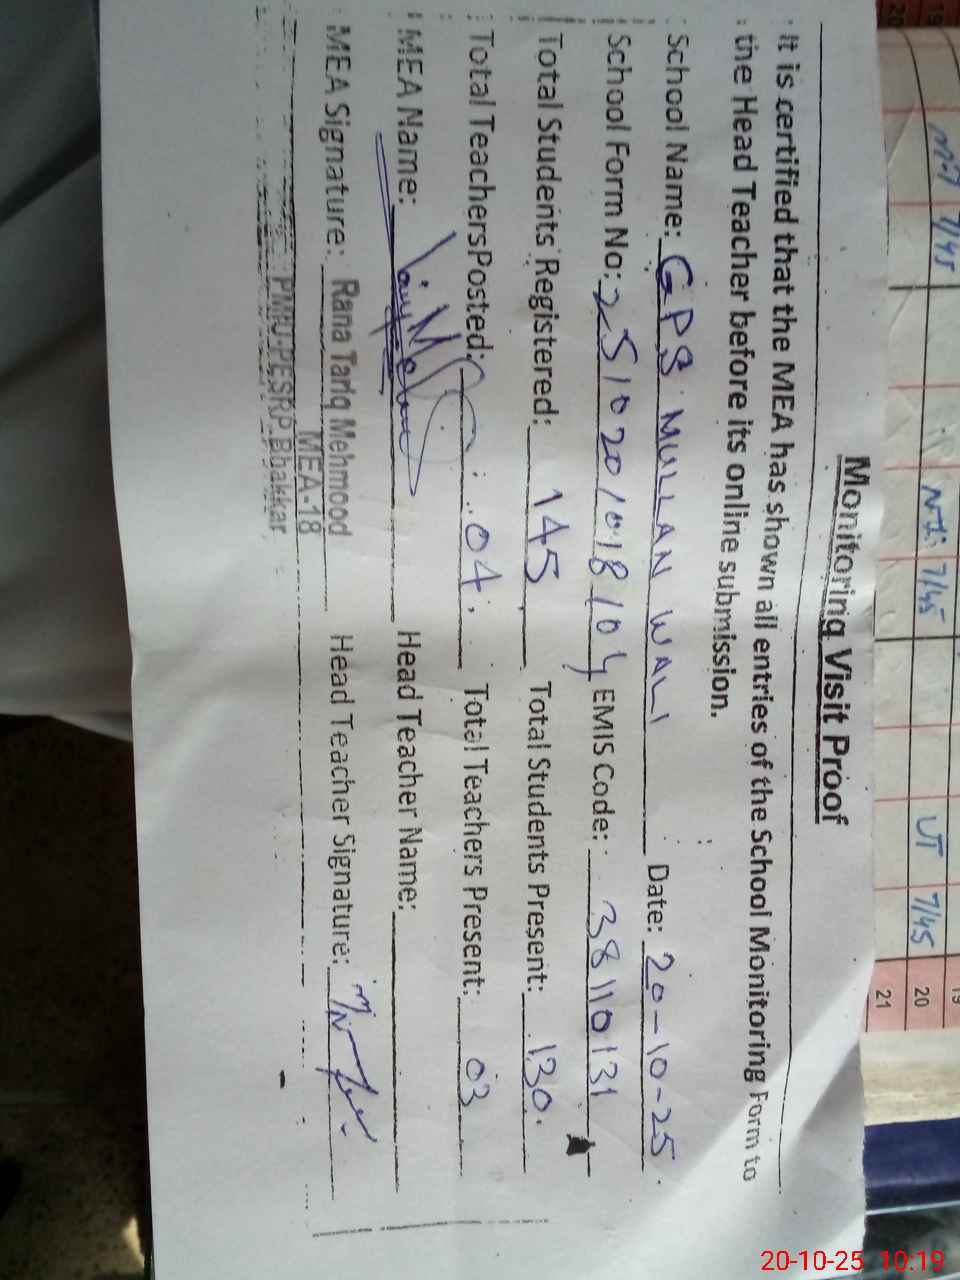 Monitoring Visit Proof
It is certified that the MEA has shown all entries of the School Monitoring Form to
the Head Teacher before its online submission.
School Name: GPS MULLAN WALI Date: 20-10-25
School Form No: 251020101818104 EMIS Code: 38110131
Total Students Registered: 145 Total Students Present: 130
Total Teachers Posted: 04 Total Teachers Present: 03
MEA Name: Head Teacher Name:
MEA Signature: Rana Tariq Mehmood Head Teacher Signature:
MEA-18
PMIU-PESRP Bhakkar
19
20
7/45
7/45
UT 7/45
19
20
21
20-10-25 10:19